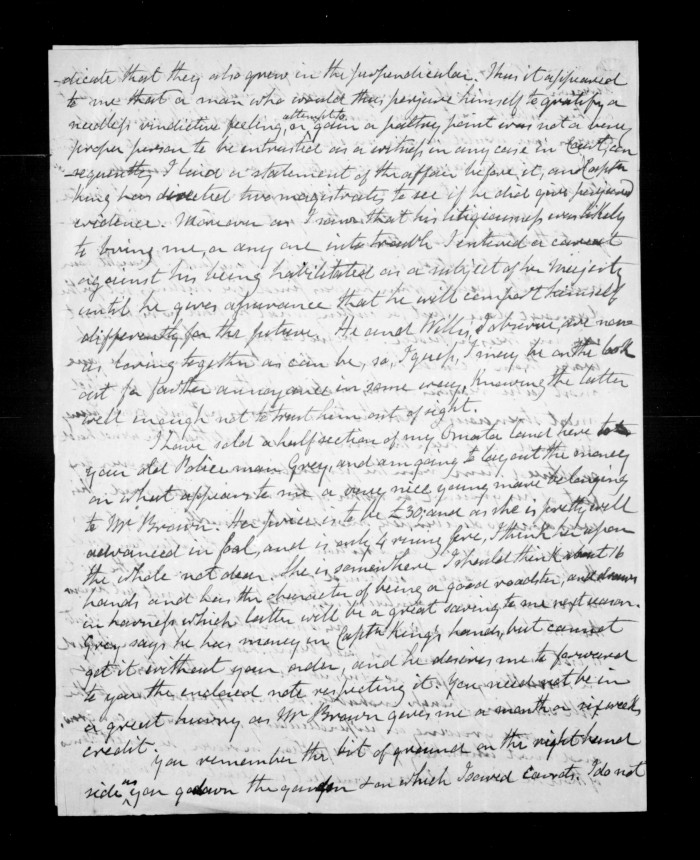 -dicate that they also grew in the perpendicular. Thus it appeared
to me that a man who would thus perjure himself to gratify a
needless vindictive feeling, or attempt to gain a paltry point was not a very
proper person to be entrusted as a witness in any case in Court, con
-sequently I laid a statement of the affair before it, and Captn
King has directed two magistrates to see if he did give perjured
evidence. Moreover as I saw that his litigiousness was likely
to bring me, or any one into trouble I entered a caveat
against his being habilitated as a subject of her Majesty
until he gives assurance that he will comport himself
differently for the future. He and Willis, I observe, are now
as loving together as can be, so, I guess, I may be on the look
out for further annoyances in some way, knowing the latter
well enough not to trust him out of sight.
I have sold a half section of my Omata land here to
your old Police man Grey, and am going to lay out the money
on what appears to me a very nice young mare belonging
to Mr Brown. Her price is to be £30; and as she is pretty well
advanced in foal, and is only 4 rising five, I think her upon
the whole not dear. She is somewhere I should think about 16
hands and has the character of being a good roadster, and draws
in harness which latter will be a great saving to me next season.
Grey says he has money in Captn King's hands, but cannot
get it without your order, and he desires me to forward
to you the enclosed note respecting it. You need not be in
a great hurry as Mr Brown gives me a month or six weeks
credit.
You remember the bit of ground on the right hand
side as you go down the garden & on which I sowed carrots. I do not